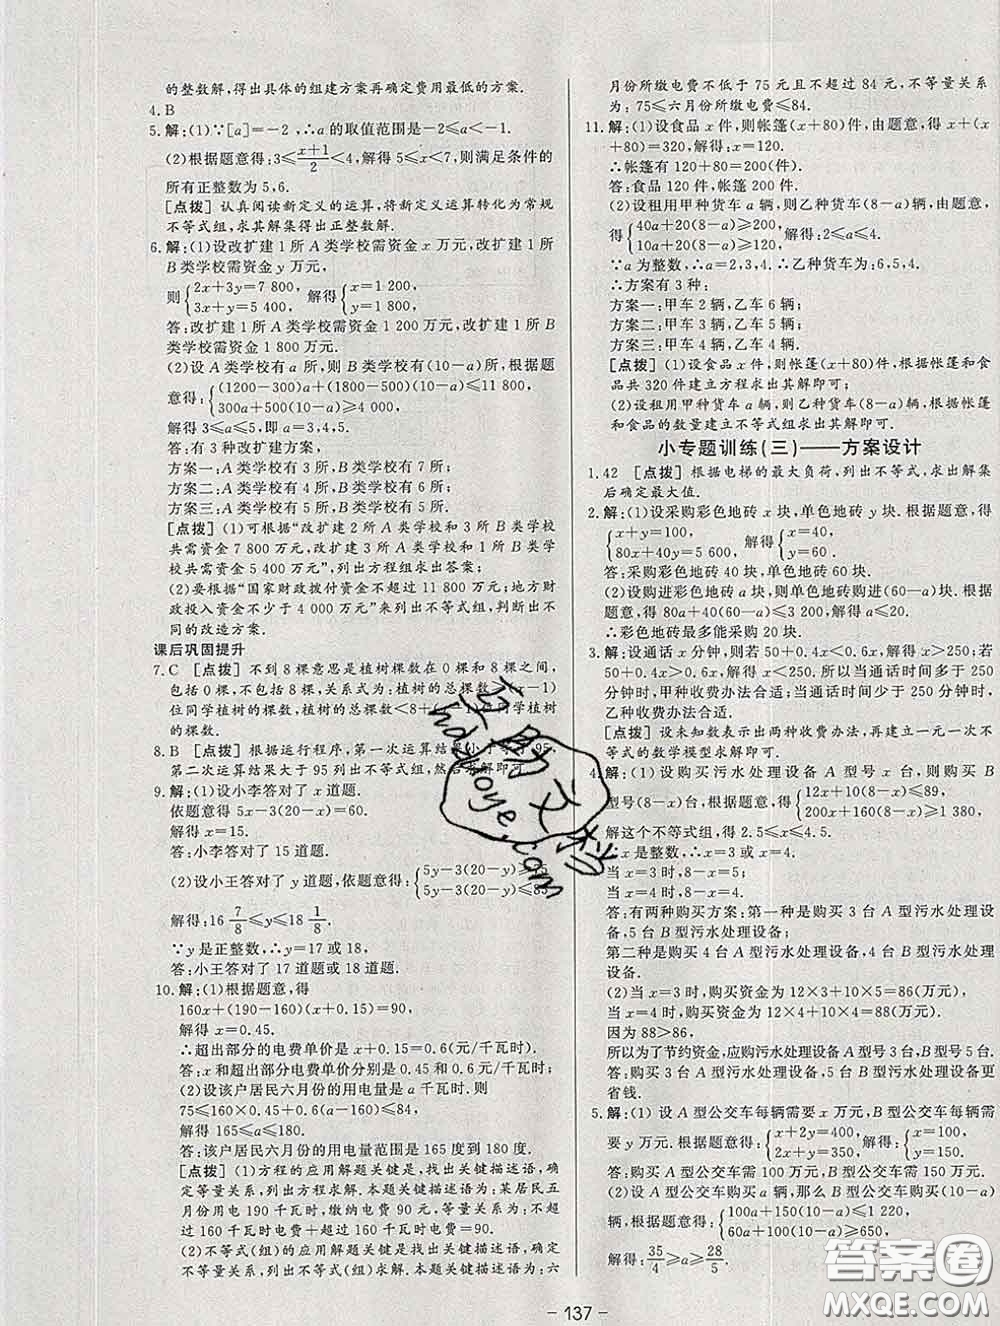 的整数解,得出具体的组建方案再确定费用最低的方案.
4.B
5.解:(1)∵[a]=-2,∴a的取值范围是-2≤a<-1.
(2)根据题意得:3≤(x+1)/2<4,解得5≤x<7,则满足条件的
所有正整数为5,6.
[点拨] 认真阅读新定义的运算,将新定义运算转化为常规
不等式组,求其解集得出正整数解.
6.解:(1)设改扩建1所A类学校需资金x万元,改扩建1
所B类学校需资金y万元,
则{2x+3y=7 800, 3x+y=5 400 解得{x=1 200, y=1 800.
答:改扩建1所A类学校需资金1 200万元,改扩建1所
B类学校需资金1 800万元.
(2)设A类学校有a所,则B类学校有(10-a)所,根据题
意得:{(1200-300)a+(1800-500)(10-a)≤11 800, 300a+500(10-a)≥4 000,
解得3≤a≤5,即a=3,4,5.
答:有3种改扩建方案.
方案一:A类学校有3所,B类学校有7所;
方案二:A类学校有4所,B类学校有6所;
方案三:A类学校有5所,B类学校有5所.
[点拨] (1)可根据“改扩建2所A类学校和3所B类学校
共需资金7 800万元,改扩建3所A类学校和1所B类学校
共需资金5 400万元”,列出方程组求出答案;
(2)要根据“国家财政拨付资金不超过11 800万元;地方财
政投入资金不少于4 000万元”来列出不等式组,判断出不
同的改造方案.
课后巩固提升
7.C [点拨] 不到8棵意思是植树棵数在0棵和8棵之间,
包括0棵,不包括8棵,关系式为:植树的总棵数≥(x-1)
位同学植树的棵数,植树的总棵数<8+(x-1)位同学植树
的棵数.
8.B [点拨] 根据运行程序,第一次运算结果小于等于95,
第二次运算结果大于95列出不等式组,然后求解即可.
9.解:(1)设小李答对了x道题.
依题意得5x-3(20-x)=60.
解得x=15.
答:小李答对了15道题.
(2)设小王答对了y道题,依题意得:{5y-3(20-y)≥75 5y-3(20-y)≤85.
解得:16 7/8≤y≤18 1/8.
∵y是正整数,∴y=17或18,
答:小王答对了17道题或18道题.
10.解:(1)根据题意,得
160x+(190-160)(x+0.15)=90,
解得x=0.45.
∴超出部分的电费单价是x+0.15=0.6(元/千瓦时).
答:x和超出部分电费单价分别是0.45和0.6元/千瓦时.
(2)设该户居民六月份的用电量是a千瓦时.则
75≤160×0.45+0.6(a-160)≤84,
解得165≤a≤180.
答:该户居民六月份的用电量范围是165度到180度.
[点拨] (1)方程的应用解题关键是,找出关键描述语,确
定等量关系,列出方程求解.本题关键描述语为:某居民五
月份用电190千瓦时,缴纳电费90元,可得到等量关系:不
超过160千瓦时电费+超过160千瓦时电费=90.
(2)不等式(组)的应用解题关键是找出关键描述语,确定
不等量关系,列出不等式(组)求解.本题关键描述语为:六
月份所缴电费不低于75元且不超过84元,不等量关系
为:75≤六月份所缴电费≤84.
11.解:(1)设食品x件,则帐篷(x+80)件,由题意,得x+(x
+80)=320,解得:x=120.
∴帐篷有120+80=200(件).
答:食品120件,帐篷200件.
(2)设租用甲种货车a辆,则乙种货车(8-a)辆,由题意,
得{40a+20(8-a)≥200, 10a+20(8-a)≥120, 解得:2≤a≤4.
∵a为整数,∴a=2,3,4.∴乙种货车为:6,5,4.
∴方案有3种:
方案一:甲车2辆,乙车6辆;
方案二:甲车3辆,乙车5辆;
方案三:甲车4辆,乙车4辆.
[点拨] (1)设食品x件,则帐篷(x+80)件,根据帐篷和食
品共320件建立方程求出其解即可;
(2)设租用甲种货车a辆,则乙种货车(8-a)辆,根据帐篷
和食品的数量建立不等式组求出其解即可.
小专题训练(三)——方案设计
1.42 [点拨] 根据电梯的最大负荷,列出不等式,求出解集
后确定最大值.
2.解:(1)设采购彩色地砖x块,单色地砖y块.根据题意,得
{x+y=100, 80x+40y=5 600, 解得{x=40, y=60.
答:采购彩色地砖40块,单色地砖60块.
(2)设购进彩色地砖a块,则单色地砖购进(2a-60)块,根据
题意,得80a+40(2a-60)≤3 200.解得a≤
∴彩色地砖最多能采购20块.
3.解:设通话x分钟,则若50+0.4x<0.6x.解得x>250.若50
+0.4x>0.6x.解得x<250.所以当通话时间多于250
分钟时,甲种收费办法合适;当通话时间少于250分钟时,
乙种收费办法合适.
[点拨] 设未知数表示出两种收费办法,再建立一元一次不
等式的数学模型求解即可.
4.解:(1)设购买污水处理设备A型号x台,则购买B
型号(8-x)台,根据题意,得{12x+10(8-x)≤89, 200x+160(8-x)≥1 380,
解这个不等式组,得2.5≤x≤4.5.
∵x是整数,∴x=3或x=4.
当x=3时,8-x=5;
当x=4时,8-x=4.
答:有两种购买方案:第一种是购买3台A型污水处理设
备,5台B型污水处理设备;
第二种是购买4台A型污水处理设备,4台B型污水处理
设备.
(2)当x=3时,购买资金为12×3+10×5=86(万元),
当x=4时,购买资金为12×4+10×4=88(万元).
因为88>86,
所以为了节约资金,应购污水处理设备A型号3台,B型号5台.
答:购买3台A型污水处理设备,5台B型污水处理设备更
省钱.
5.解:(1)设A型公交车每辆需要x万元,B型公交车每辆需
要y万元.由题意,得:{x+2y=400, 2x+y=350, 解得:{x=100, y=150.
答:购买A型公交车需100万元,B型公交车需150万元.
(2)设A型公交车购买a辆,那么B型公交车购买(10-a)
辆,根据题意,得:{100a+150(10-a)≤1 220, 60a+100(10-a)≥650,
解得:35/4≥a≥28/5.
- 137 -
hdzuoye.com
答案圈
MXQE.COM